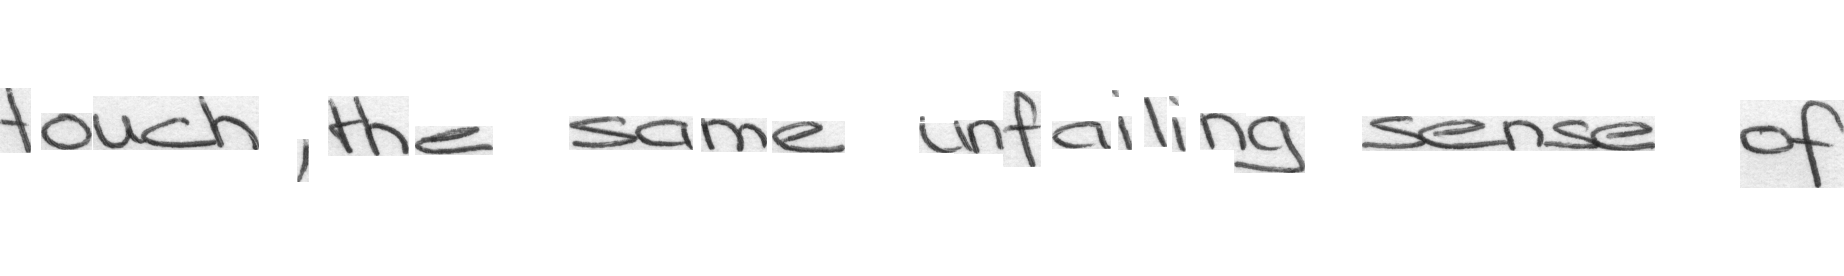 touch, the same unfailing sense of